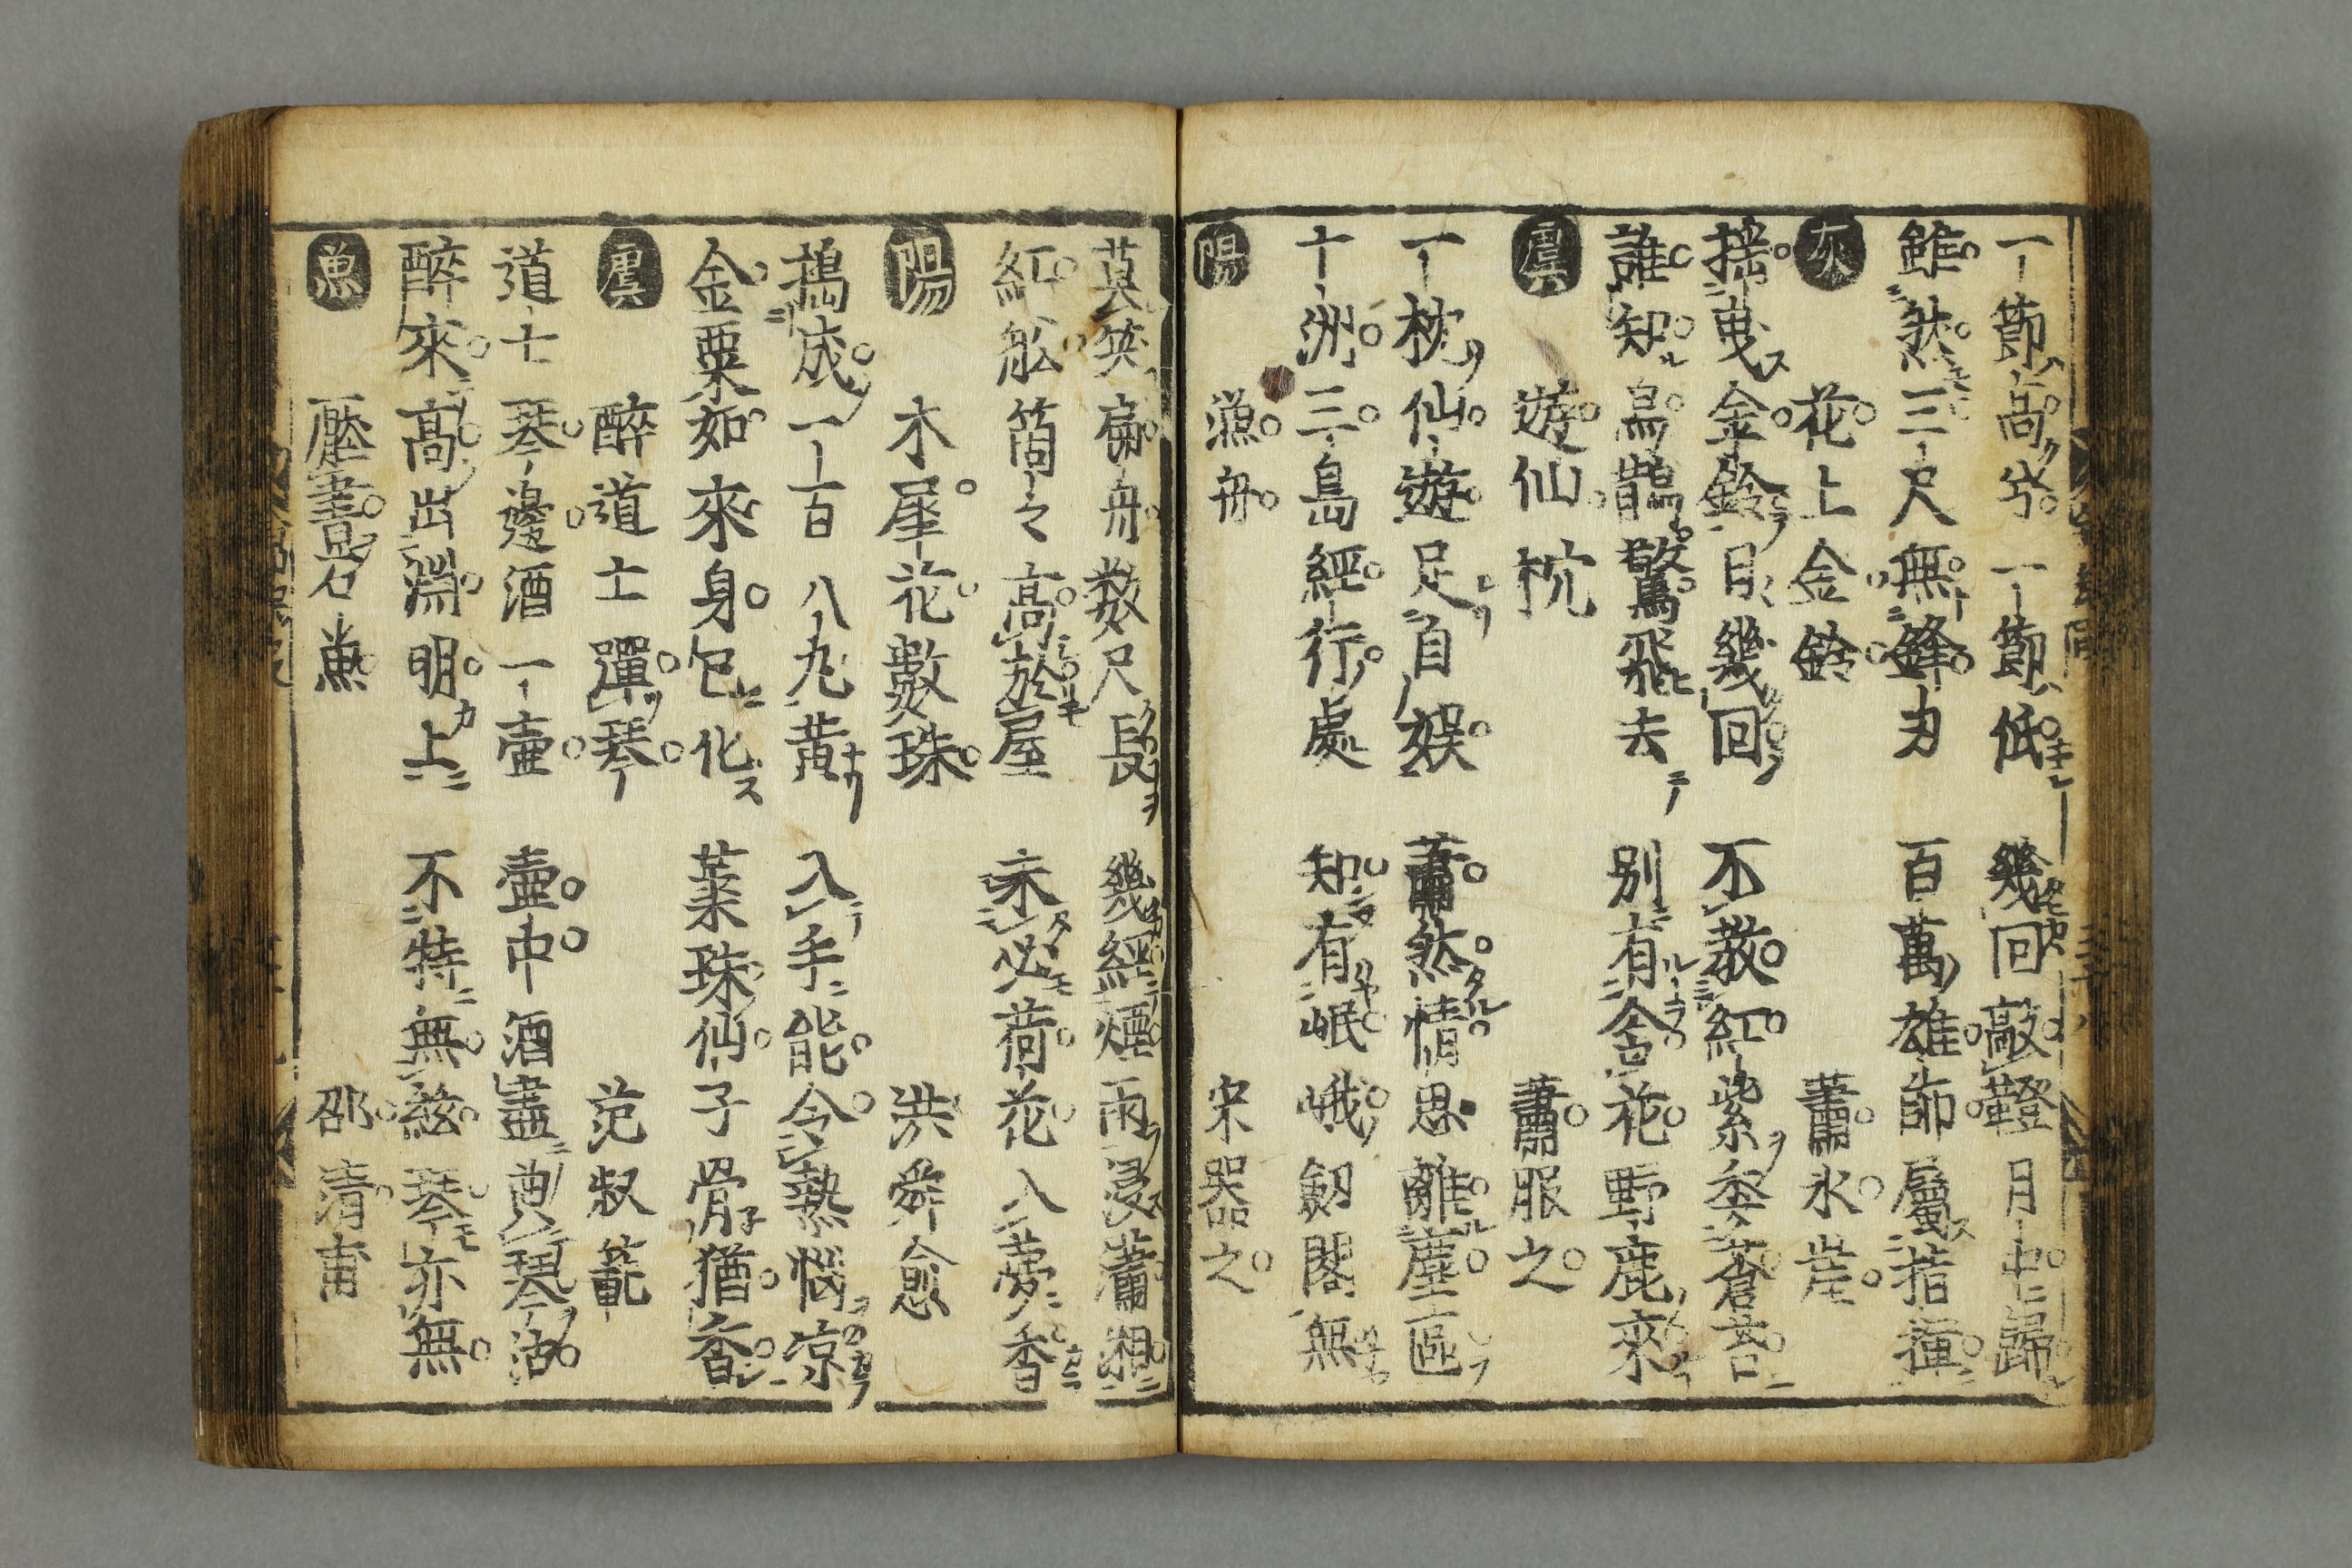 一節高兮一節低　幾回敲鐙月中歸
雖然三尺無鋒刃　百萬雄師屬指揮
灰　花上金鈴　蕭氷崖
搖曳金鈴日幾回　不教紅紫委蒼苔
誰知鳥鵲驚飛去　別有含花野鹿來
虞　遊仙枕　蕭服之
一枕仙遊足自娯　蕭然情思離塵區
十洲三島經行處　知有岷峨劔閣無
陽　漁舟　宋器之
莫笑扁舟数尺長　幾經煙雨浸瀟湘
紅舩箇々高於屋　未必荷花入夢香
陽　木犀花數珠　洪舜愈
搗成一百八九黄　入手能令熱惱凉
金粟如來身已化　蘂珠仙子骨猶香
虞　醉道士彈琴　范叔範
道士琴邊酒一壷　壷中酒盡典琴沽
醉來高出淵明上　不特無絃琴亦無
魚　壓書石魚　邵清甫